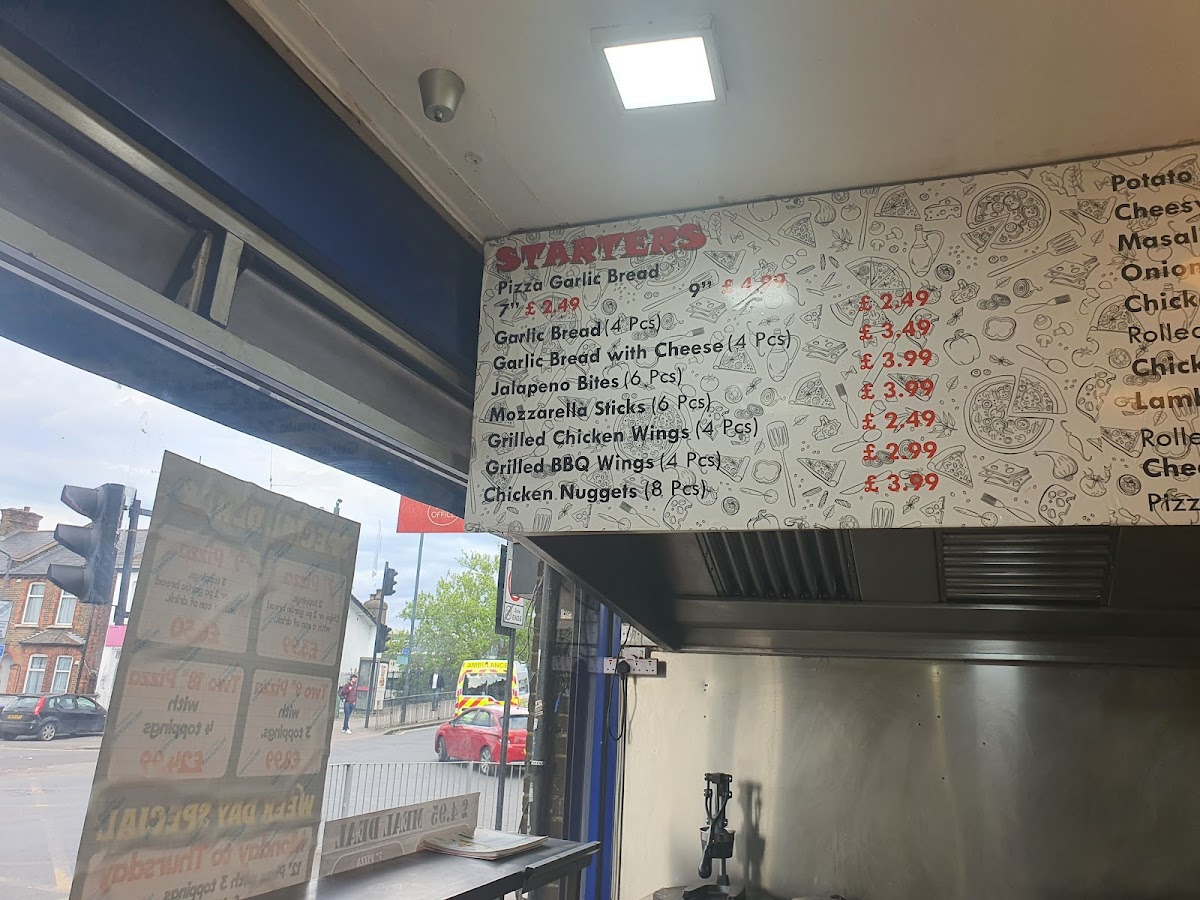 STARTERS
Pizza Garlic Bread
7" £ 2.49 9" £ 4.99
Garlic Bread (4 Pcs) £ 2.49
Garlic Bread with Cheese (4 Pcs) £ 3.49
Jalapeno Bites (6 Pcs) £ 3.99
Mozzarella Sticks (6 Pcs) £ 3.99
Grilled Chicken Wings (4 Pcs) £ 2.49
Grilled BBQ Wings (4 Pcs) £ 2.99
Chicken Nuggets (8 Pcs) £ 3.99
Potato
Chees
Masal
Onion
Chick
Rolled
Chick
Lamb
Rolle
Chee
Pizz
Two 9" Pizza
with
3 toppings
£8.99
with
4 toppings
£24.99
WEEK DAY SPECIAL
Monday to Thursday
12" Pizza with 3 toppings
£ 4.95 MEAL DEAL
AMBULANCE
OFFICE